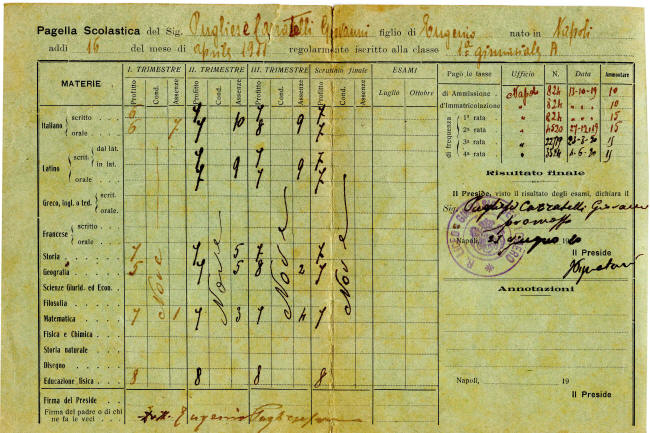 Pagella Scolastica del Sig. Pugliese Carratelli Giovanni figlio di Eugenio nato in Napoli
addì 16 del mese di aprile 1911 regolarmente iscritto alla classe 1a ginnasiale A
MATERIE I. TRIMESTRE II. TRIMESTRE III. TRIMESTRE Scrutinio finale ESAMI
Profitto Cond. Assenze Profitto Cond. Assenze Profitto Cond. Assenze Profitto Cond. Assenze Luglio Ottobre
Italiano scritto 6 7 7 7
orale 6 7 7 10 8 9 7
Latino scrit. dal lat. 7 7 7
in lat. 9 9
orale 7 7 7
Greco, ingl. o ted. scritto
orale
Francese scritto
orale
Storia 7 7 5 7 7
Geografia 5 7 5 8 2 7
Nove Nove Nove Nove
Scienze Giurid. ed Econ.
Filosofia
Matematica 7 1 7 3 7 4 7
Fisica e Chimica
Storia naturale
Disegno
Educazione fisica 8 8 8 8
Firma del Preside
Firma del padre o di chi
ne fa le veci Eugenio Pugliese
Pagò le tasse Ufficio N. Data Ammontare
di Ammissione Napoli 824 13-10-19 10
d'Immatricolazione " 824 " " 10
di frequenza 1a rata " 824 " " 15
2a rata " 4520 27-12-19 15
3a rata " 15
4a rata " 15
Risultato finale
Il Preside, visto il risultato degli esami, dichiara il
Sig. Pugliese Carratelli Giovanni
promosso
Napoli, giugno 20
Il Preside
R. LICEO GINNASIO
Annotazioni
Napoli, 19
Il Preside